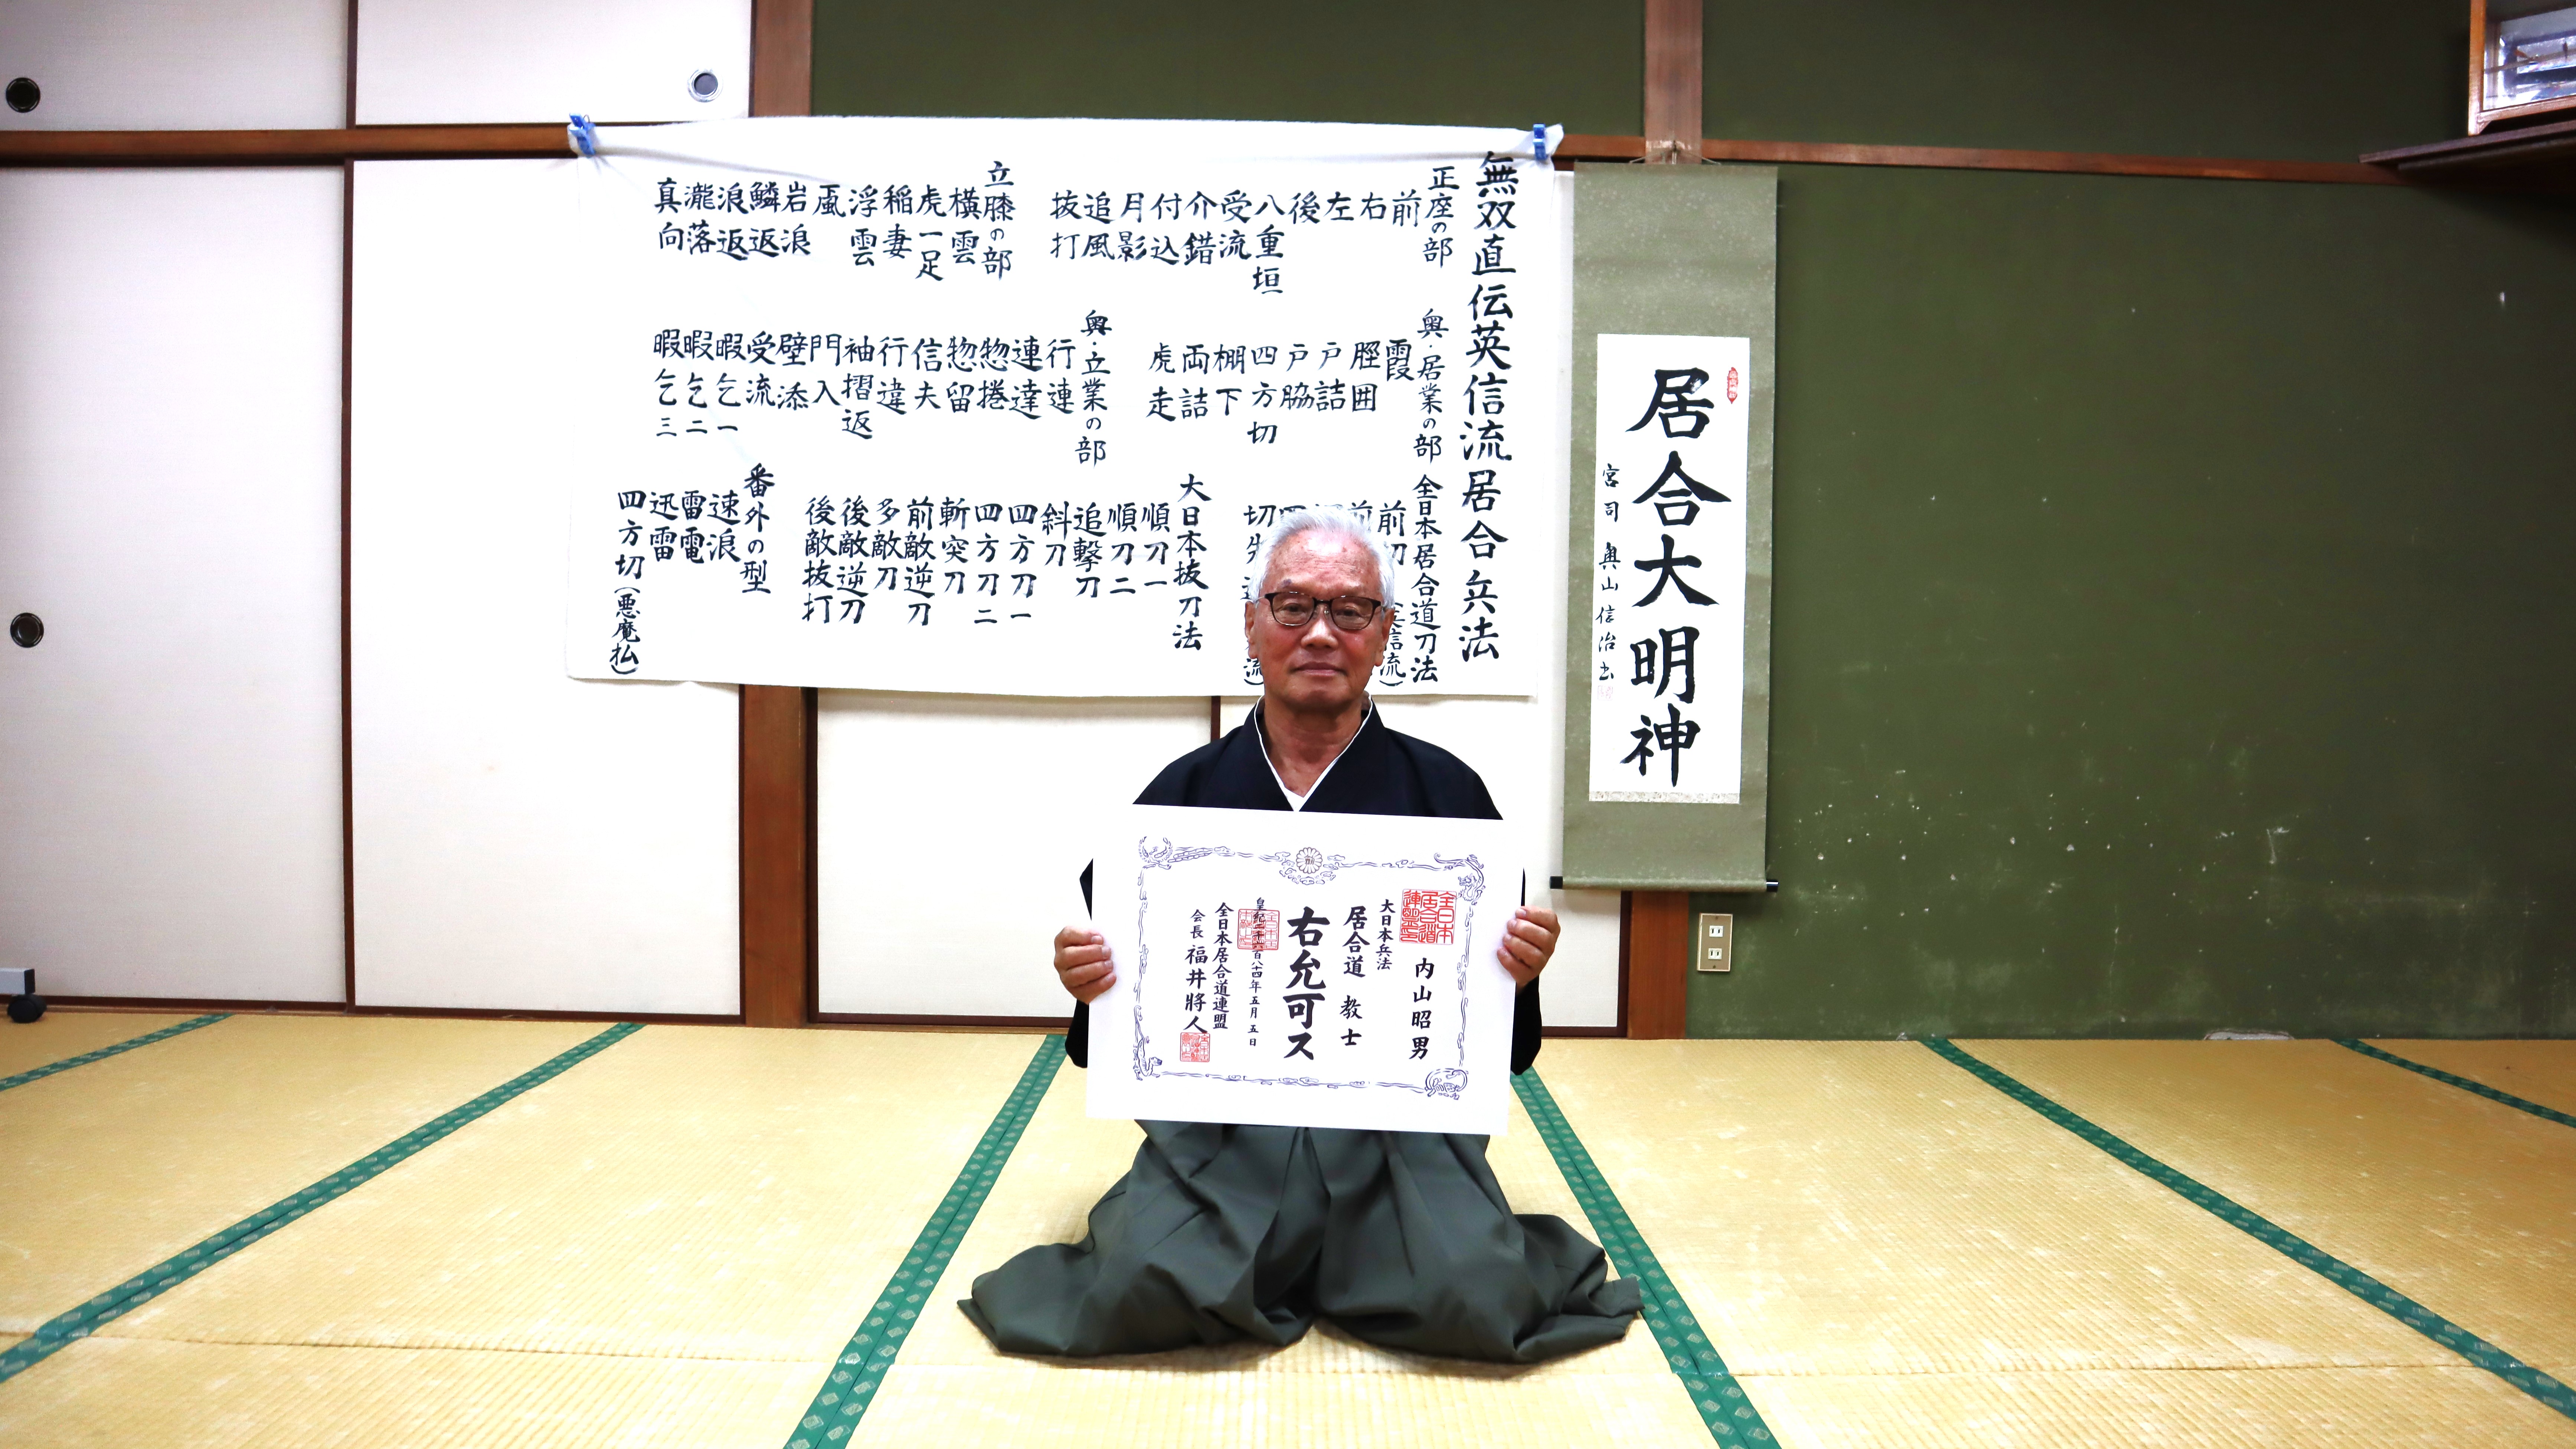 無双直伝英信流居合兵法
正座の部
前
右
左
後
八重垣
受流
介錯
付込
月影
追風
抜打
立膝の部
横雲
虎一足
稲妻
浮雲
颪
岩浪
鱗返
浪返
瀧落
真向
奥・居業の部
霞
脛囲
戸詰
戸脇
四方切
棚下
両詰
虎走
奥・立業の部
行連
連達
惣捲
惣留
信夫
行違
袖摺返
門入
壁添
受流
暇乞一
暇乞二
暇乞三
全日本居合道刀法
前切
大日本抜刀法
順刀一
順刀二
追撃刀
斜刀
四方刀一
四方刀二
斬突刀
前敵逆刀
多敵刀
後敵逆刀
後敵抜打
番外の型
速浪
雷電
迅雷
四方切(悪魔払)
居合大明神
宮司 奥山信治書
全日本居合道連盟印
内山昭男
大日本兵法
居合道 教士
右允可ス
皇紀二千六百八十四年五月五日
全日本居合道連盟
会長 福井將人